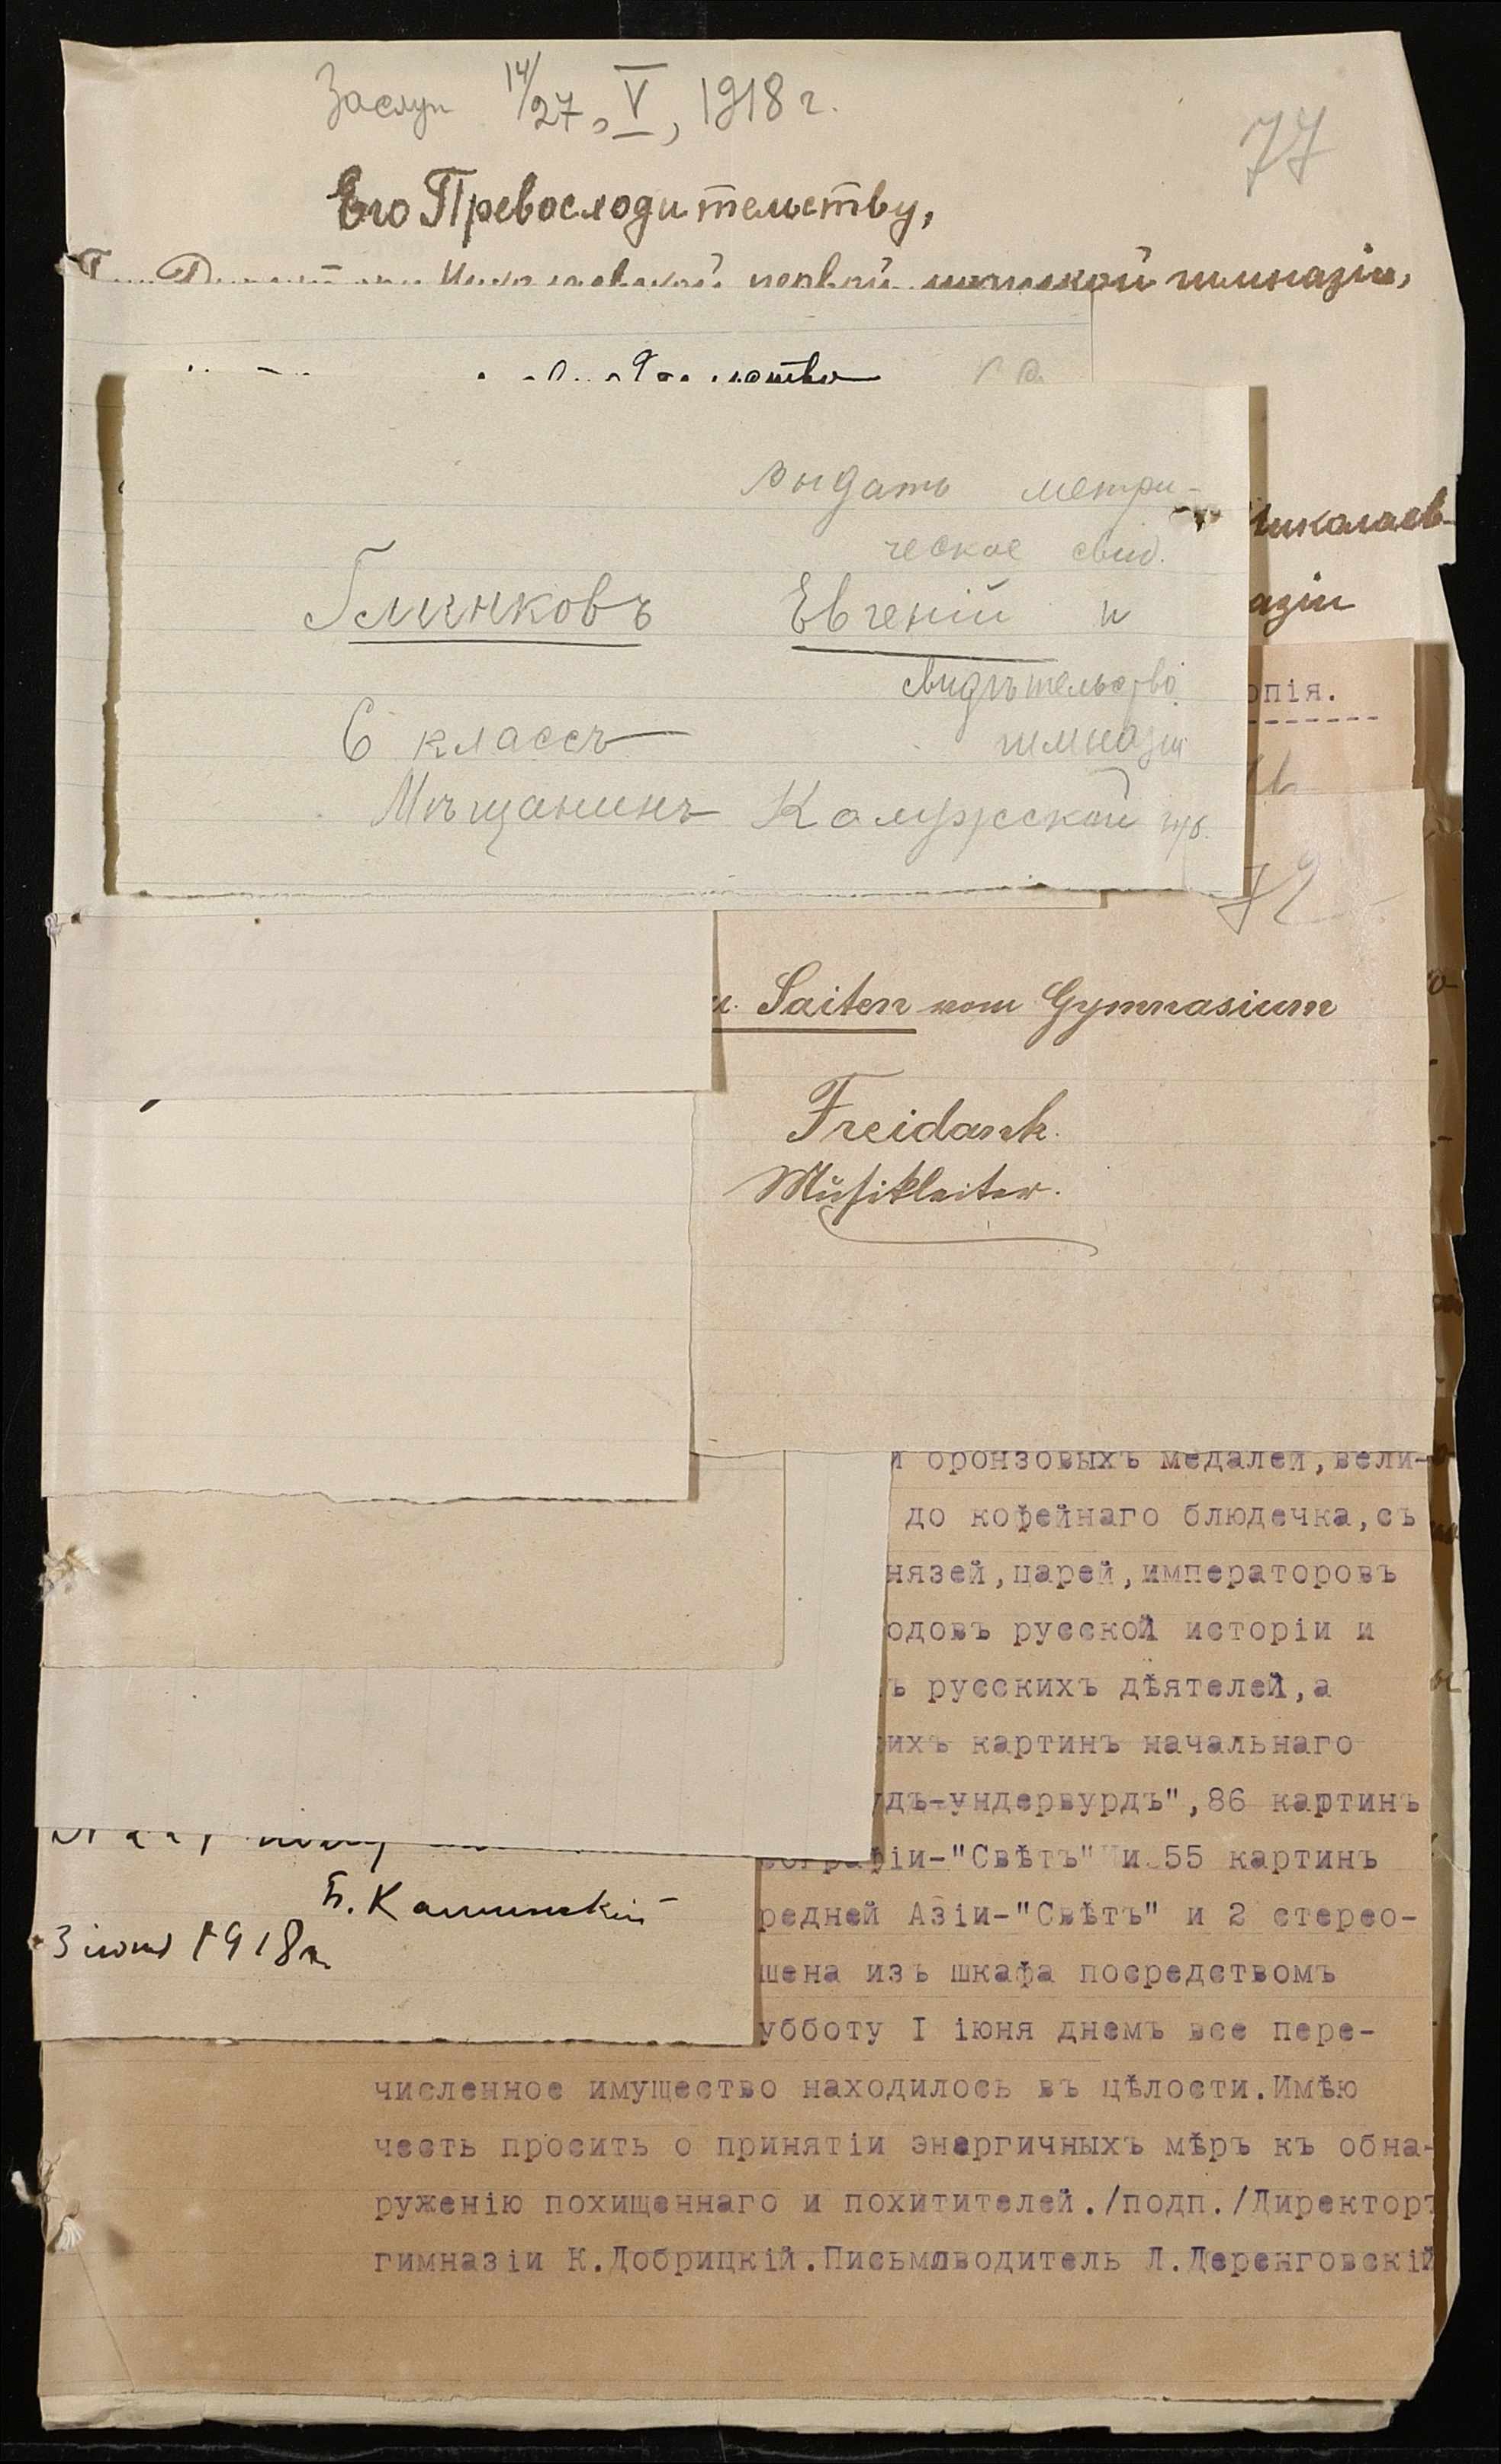 Заслуш 14/27, V, 1918 г.
77
Его Превосходительству,
первой мужской гимназіи,
выдать метри-
ческое свид.
Глинковъ Евгеній и
свидѣтельство
6 классъ гимназіи
Мѣщанинъ Калужской губ.
Николаев-
азіи
опія.
72
u. Saiten vom Gymnasium
Freidank.
Musikleiter.
и бронзовыхъ медалей,вели-
до кофейнаго блюдечка,съ
нязей,царей,императоровъ
одовъ русской исторіи и
ъ русскихъ дѣятелей,а
ихъ картинъ начальнаго
дъ-ундервурдъ",86 картинъ
ографіи-"Свѣтъ" и 55 картинъ
редней Азіи-"Свѣтъ" и 2 стерео-
шена изъ шкафа посредствомъ
убботу I іюня днемъ все пере-
Б. Каминскій
3 іюня 1918 г.
численное имущество находилось въ цѣлости.Имѣю
честь просить о принятіи энергичныхъ мѣръ къ обна-
руженію похищеннаго и похитителей./подп./Директоръ
гимназіи К.Добрицкій.Письмоводитель Л.Деренговскій